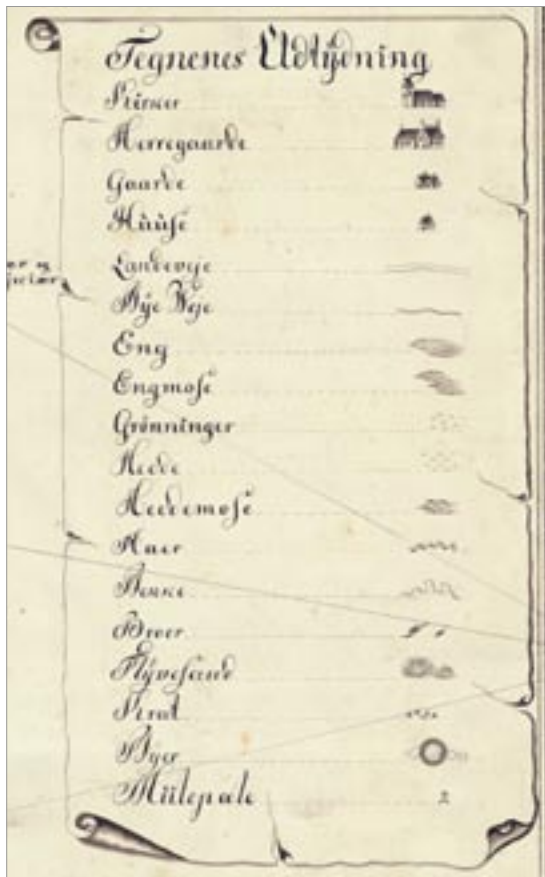 Tegnenes Udtÿdning
Kirker
Herregaarde
Gaarde
Hüüse
Landeveje
Bÿe Veje
Eng
Engmose
Grønninger
Heede
Heedemose
Aaer
Bekke
Broer
Flÿvesand
Krat
Bÿer
Miilepæle
er og